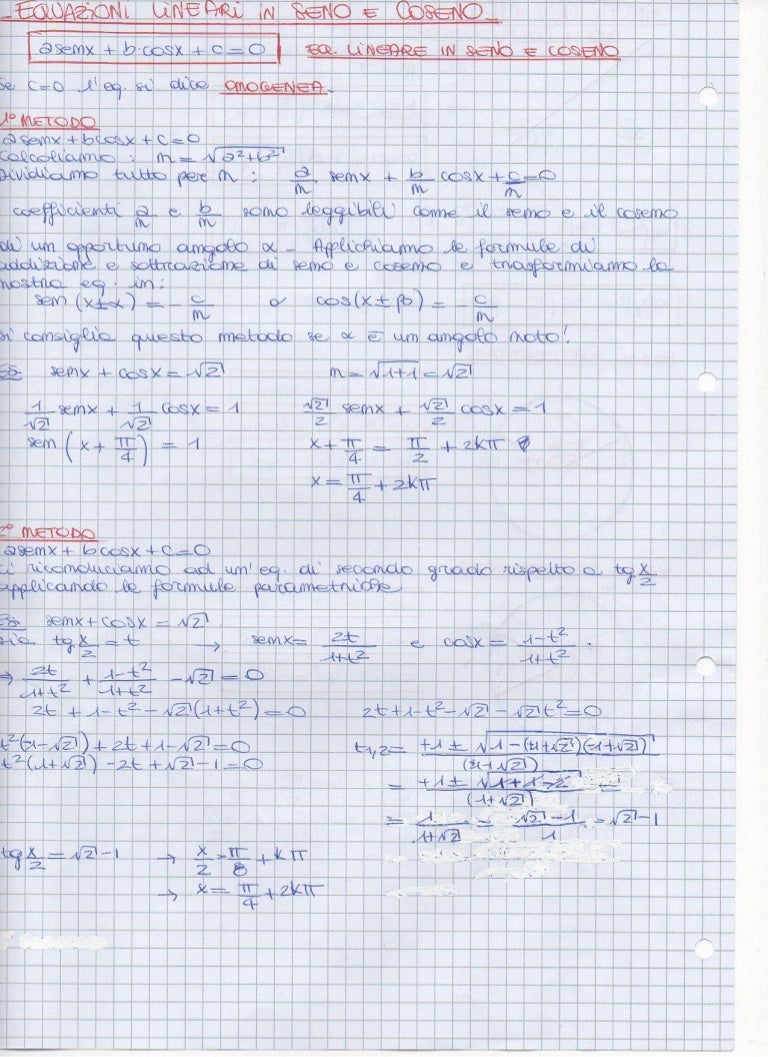 EQUAZIONI LINEARI IN SENO E COSENO
asenx + b·cosx + c = 0 EQ. LINEARE IN SENO E COSENO
se c=0 l'eq. si dice OMOGENEA.
1° METODO
asenx + bcosx + c = 0
calcoliamo: m = √(a²+b²)
dividiamo tutto per m: a/m senx + b/m cosx + c/m = 0
coefficienti a/m e b/m sono leggibili come il seno e il coseno
di un opportuno angolo α - Applichiamo le formule di
addizione e sottrazione di seno e coseno e trasformiamo la
nostra eq. in:
sen(x±α) = - c/m o cos(x±β) = - c/m
si consiglia questo metodo se α è un angolo noto!
Es. senx + cosx = √2 m = √(1+1) = √2
1/√2 senx + 1/√2 cosx = 1 √2/2 senx + √2/2 cosx = 1
sen(x + π/4) = 1 x + π/4 = π/2 + 2kπ
x = π/4 + 2kπ
2° METODO
asenx + bcosx + c = 0
ci riconduciamo ad un'eq. di secondo grado rispetto a tg x/2
applicando le formule parametriche
Es. senx + cosx = √2
sia tg x/2 = t → senx = 2t/(1+t²) e cosx = (1-t²)/(1+t²).
→ 2t/(1+t²) + (1-t²)/(1+t²) - √2 = 0
2t + 1 - t² - √2(1+t²) = 0 2t + 1 - t² - √2 - √2t² = 0
t²(-1-√2) + 2t + 1 - √2 = 0 t1,2 = (+1 ± √(1-(+1+√2)(-1+√2)))/(+1+√2)
t²(1+√2) - 2t + √2 - 1 = 0 = (+1 ± √(1+1-2))/(1+√2) =
= 1/(1+√2) = (√2-1)/1 = √2-1
tg x/2 = √2-1 → x/2 = π/8 + kπ
→ x = π/4 + 2kπ